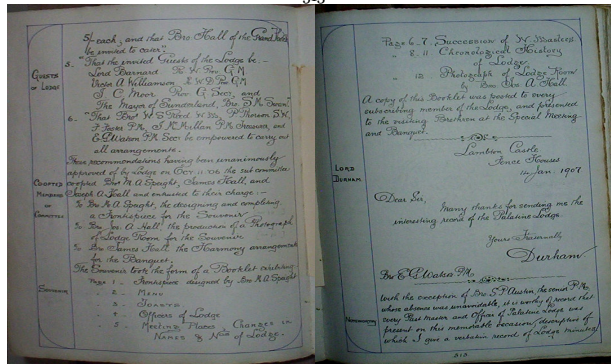 5/- each, and that Bro. Hall of the Grand Hotel
be invited to cater".
GUESTS
OF LODGE
5 - "That the invited Guests of the Lodge be -
Lord Barnard R.W. Prov. G.M.
Victor A. Williamson
T. C. Moor Prov. G. Secy. and
The Mayor of Sunderland, Bro.
6 - "That Bros.
P.M., P.M. Treasurer, and
E.G. Watson P.M. Secy be empowered to carry out
all arrangements.
These recommendations having been unanimously
approved of by Lodge on Oct 11 '06 the sub committee
CO-OPTED
MEMBERS
COMMITTEE
co-opted Bros. M. A. Speight, James Hall, and
Joseph A. Hall and entrusted to their charge :-
To Bro. M. A. Speight, the designing and completing
a Frontispiece for the Souvenir
To Bro. Jos. A. Hall, the production of a Photograph
of Lodge Room, for the Souvenir
To Bro. James Hall, the Harmony arrangements
for the Banquet.
SOUVENIR
The Souvenir took the form of a Booklet exhibiting
Page 1 - Frontispiece designed by Bro. M. A. Speight
" 2 - Menu
" 3 - Toasts
" 4 - Officers of Lodge
" 5 - Meeting Places & Changes in
Names & Nos. of Lodge.
Page 6-7 Succession of W. Masters
" 8-11 Chronological History
of Lodge
" 12 Photograph of Lodge Room
by Bro. Jos. A. Hall.
A copy of this Booklet was posted to every
subscribing member of the Lodge, and presented
to the visiting Brethren at the Special Meeting
and Banquet.
LORD
DURHAM
Lambton Castle
Fence Houses
14 Jan. 1907
Dear Sir,
Many thanks for sending me the
interesting record of the Palatine Lodge.
Yours Fraternally
Durham
Bro. E. G. Watson P.M.
With the exception of Bro. S. P. Austin, the senior P.M.,
whose absence was unavoidable, it is worthy of record that
every Past Master and Officer of Palatine Lodge was
present on this memorable occasion, descriptive of
which I give a verbatim record of Lodge minutes
313